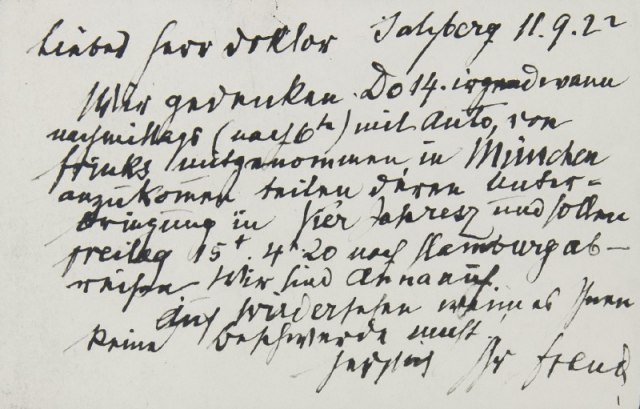 Lieber Herr Doktor Salzberg 11.9.22
Wir gedenken Do 14. irgendwann
nachmittags (nach 6h) mit Auto, von
Frinks mitgenommen, in München
anzukommen teilen deren Unter-
bringung in Vier Jahresz und sollen
freitag 15t. 4.20 nach Hamburg ab-
reisen Wir sind Anna u
Auf Wiedersehen wenn es Ihnen
keine Beschwerde macht
herzlich Ihr Freud